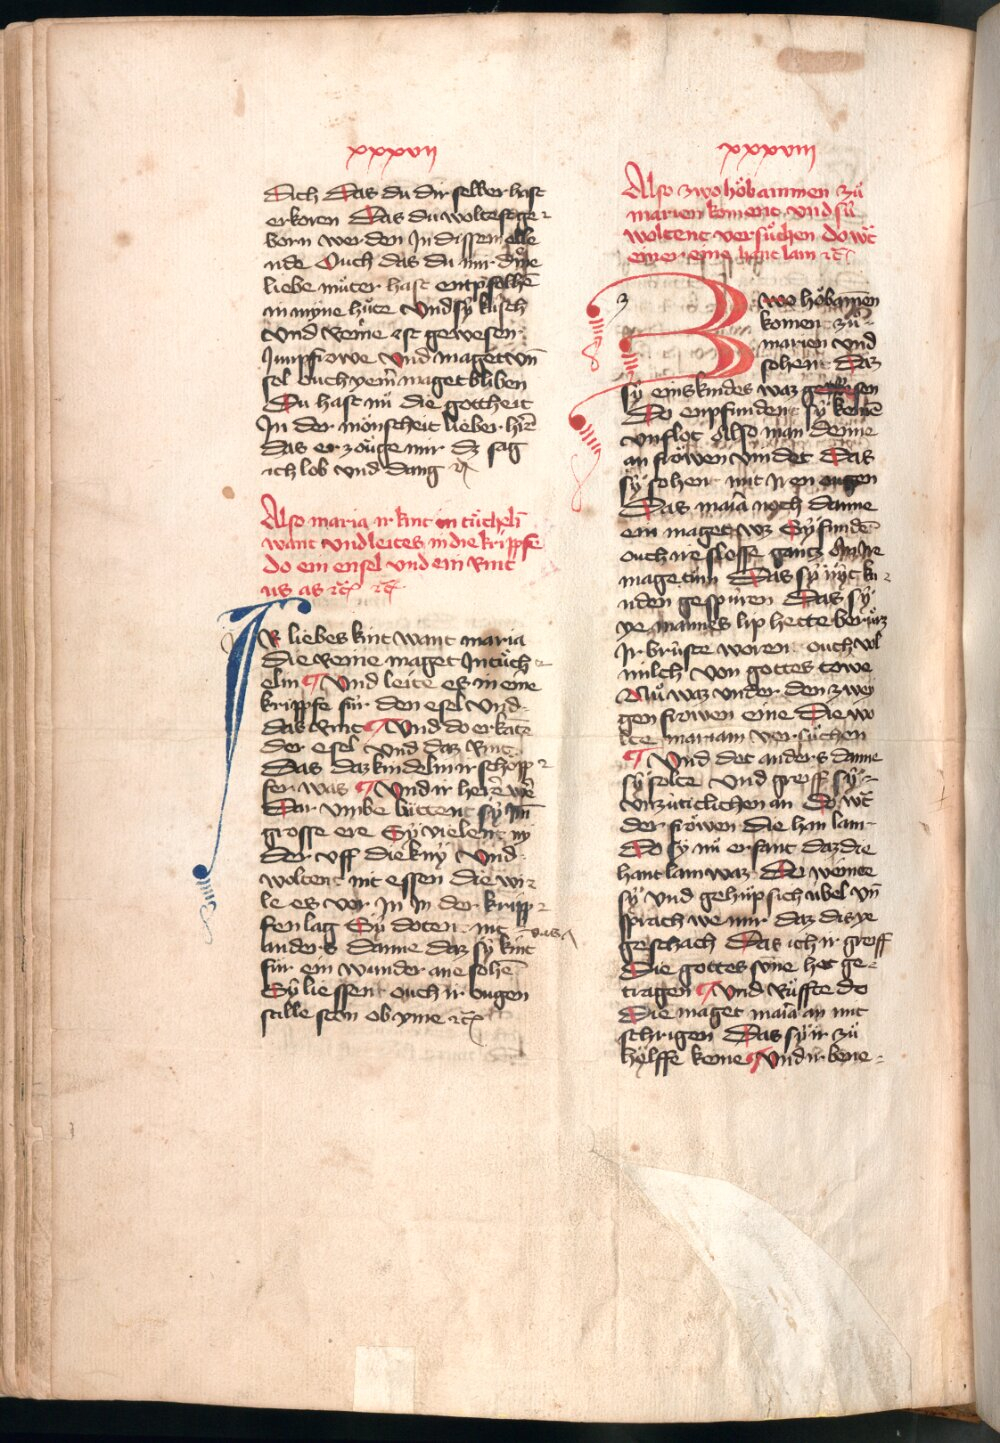 xxxvii
Dich Das du dir selber hast
erkoren Das du woltest ge-
born werden In dissem elle
nde Ouch das du mir dine
liebe můter hast entpfolhē
in myne hůte Und sy kùsch
und Reine ist gewesen
Jumpfrowe und maget vn̄
sol ouch yem̄ maget bliben
Du hast nů die gottheit
In der mönscheit lieber hir̄e
das er zöuge mir dz sag
ich lob und dang
Also maria ir kint in tůchelī
want und leites in die krippfe
do ein ensel und ein Rint
us as
IR liebes kint want maria
die Reine maget In tůch
elin ¶ Und leite es in eine
krippfe fùr den esel und
das Rint ¶ Und do erkāte
der esel und daz Rint
Das daz kindelin ir schöpp-
fer was ¶ Und ir herre wē
Dar umbe buttent sy Im
grosse ere Sy vielent ny
der uff die kny Und
woltent nit essen die wi-
le es vor In in der kripp-
fen lag Sy doten nit
anders danne daz sy daz kint
fùr ein wunder ane sohē
Sy liessent ouch ir ougen
stille ston ob yme
xxxviii
Also zwo höbammen zů
marien koment und sù
woltent versůchen do wt
einer eine hant lam
Zwo höbamēn
komen zů
marien und
sohent Daz
sy eins kindes waz genesen
Do enpfundent sy keine
unflot Also man denne
an fröwen vindet Das
sy sohent mit Iren ougen
Das maīa noch danne
ein maget wz Sy fundē
ouch ire slosse gantz An ir
magetům Das sy nùt ku-
nden gespùren Das sy
ye mannes lip hette berůrt
Ir brùste woren ouch vol
milch von gottes towe
Nů waz under den zwei
gen frowen eine Die wo
lte mariam versůchen
¶ Und det anders danne
sy solte Und greiff sy
unzùticlichen an Do wt
der fröwen die han lam
Do sy nů erfant daz die
hant lam waz Do weinte
sy und gehùp sich ùbel vn̄
sprach we mir daz das ye
geschach Das ich ir greiff
Die gottes sùne het ge-
tragen ¶ Und Rùffte do
Die maget maīa an mit
schrigen Das sy ir zů
hylffe keme ¶ Und ir bene-